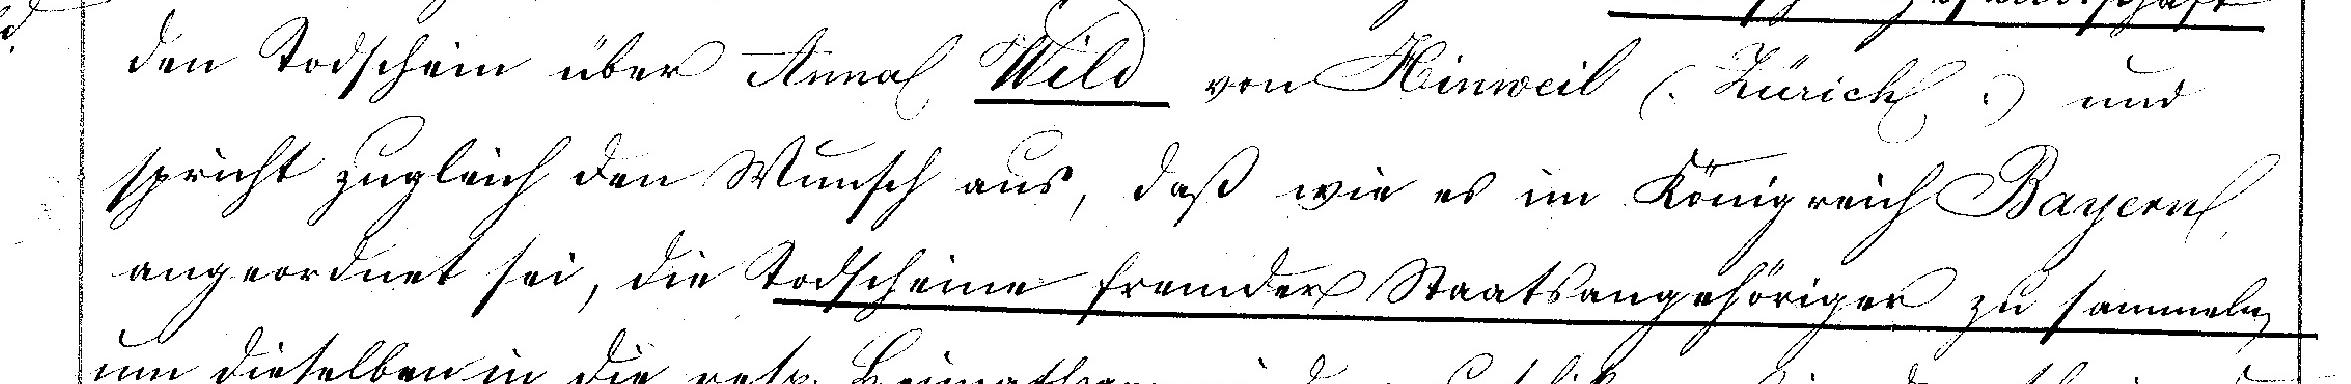 den Todschein über Anna Wild von Hinweil (: Zürich :) und
spricht zugleich den Wunsch aus, daß wie es im Königreich Bayern
angeordnet sei, die Todscheine fremder Staatsangehöriger zu sammeln
um dieselben in die resp.